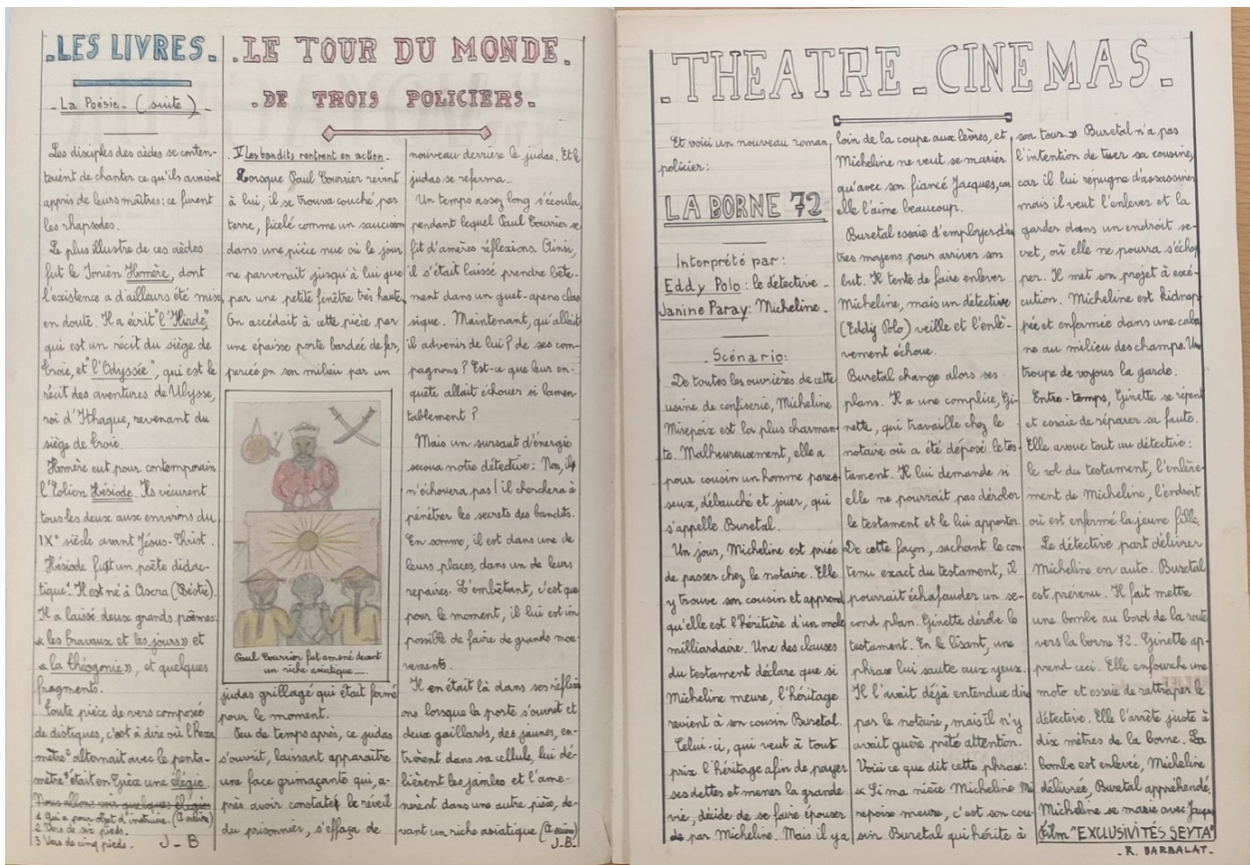 .LES LIVRES.
- La Poésie - (suite) -
Les disciples des aèdes se conten-
taient de chanter ce qu'ils avaient
appris de leurs maîtres: ce furent
les rhapsodes.
Le plus illustre de ces aèdes
fut le Ionien Homère, dont
l'existence a d'ailleurs été mise
en doute. Il a écrit "l'Iliade",
qui est un récit du siège de
Troie, et "l'Odyssée", qui est le
récit des aventures de Ulysse,
roi d'Ithaque, revenant du
siège de Troie.
Homère eut pour contemporain
l'Eolien Hésiode. Ils vécurent
tous les deux aux environs du
IXe siècle avant Jésus-Christ.
Hésiode fut un poète didac-
tique¹. Il est né à Ascra (Béotie).
Il a laissé deux grands poèmes:
« les travaux et les jours » et
« la théogonie », et quelques
fragments.
Toute pièce de vers composée
de distiques, c'est à dire où l'hexa
mètre² alternait avec le penta-
mètre³ était en Grèce une élégie.
Nous allons voir quelques élégies
(A suivre)
1 Qui a pour objet d'instruire.
2 Vers de six pieds.
3 Vers de cinq pieds. J-B
.LE TOUR DU MONDE.
.DE TROIS POLICIERS.
V Les bandits rentrent en action.
Lorsque Paul Courrier revint
à lui, il se trouva couché par
terre, ficelé comme un saucisson
dans une pièce nue où le jour
ne parvenait jusqu'à lui que
par une petite fenêtre très haute.
On accédait à cette pièce par
une épaisse porte bardée de fer,
percée en son milieu par un
Paul Courrier fut amené devant
un riche asiatique
judas grillagé qui était fermé
pour le moment.
Peu de temps après, ce judas
s'ouvrit, laissant apparaître
une face grimaçante qui, a-
près avoir constaté le réveil
du prisonnier, s'effaça de
nouveau derrière le judas. Et le
judas se referma..
Un temps assez long s'écoula,
pendant lequel Paul Courrier se
fit d'amères réflexions. Ainsi,
il s'était laissé prendre bête-
ment dans un guet-apens clas
sique. Maintenant, qu'allait-
il advenir de lui? de ses com-
pagnons? Est-ce que leur en-
quête allait échouer si lamen-
tablement?
Mais un sursaut d'énergie
secoua notre détective: Non, il
n'échouera pas! il cherchera à
pénétrer les secrets des bandits.
En somme, il est dans une de
leurs places, dans un de leurs
repaires. L'embêtant, c'est que
pour le moment, il lui est im
possible de faire de grands mou-
vements.
Il en était là dans ses réflexi
ons lorsque la porte s'ouvrit et
deux gaillards, des jaunes, en-
trèrent dans sa cellule, lui dé-
lièrent les jambes et l'ame-
nèrent dans une autre pièce, de-
vant un riche asiatique (A suivre)
J-B.
.THEATRE_CINEMAS.
Et voici un nouveau roman
policier:
LA BORNE 72
Interprété par:
Eddy Polo: le détective -
Janine Paray: Micheline.
- Scénario:
De toutes les ouvrières de cette
usine de confiserie, Micheline
Mirepoix est la plus charman-
te. Malheureusement, elle a
pour cousin un homme pares-
seux, débauché et jouer, qui
s'appelle Buretal.
Un jour, Micheline est priée
de passer chez le notaire. Elle
y trouve son cousin et apprend
qu'elle est l'héritière d'un oncle
milliardaire. Une des clauses
du testament déclare que si
Micheline meure, l'héritage
revient à son cousin Buretal.
Celui-ci, qui veut à tout
prix l'héritage afin de payer
ses dettes et mener la grande
vie, décide de se faire épouser
par Micheline. Mais il y a
loin de la coupe aux lèvres, et
Micheline ne veut se marier
qu'avec son fiancé Jacques, car
elle l'aime beaucoup.
Buretal essaie d'employer d'au
tres moyens pour arriver son
but. Il tente de faire enlever
Micheline, mais un détective
(Eddy Polo) veille et l'enlè-
vement échoue.
Buretal change alors ses
plans. Il a une complice, Gi-
nette, qui travaille chez le
notaire où a été déposé le tes-
tament. Il lui demande si
elle ne pourrait pas dérober
le testament et le lui apporter.
De cette façon, sachant le con-
tenu exact du testament, il
pourrait échafauder un se-
cond plan. Ginette dérobe le
testament. En le lisant, une
phrase lui saute aux yeux.
Il l'avait déjà entendue dire
par le notaire, mais il n'y
avait guère prêté attention.
Voici ce que dit cette phrase:
« Si ma nièce Micheline Mi
repoix meure, c'est son cou-
sin Buretal qui hérite à
son tour» Buretal n'a pas
l'intention de tuer sa cousine,
car il lui répugne d'assassiner
mais il veut l'enlever et la
garder dans un endroit se-
cret, où elle ne pourra s'échap
per. Il met son projet à exé-
cution. Micheline est kidnap
pée et enfermée dans une caba
ne au milieu des champs. Une
troupe de voyous la garde.
Entre-temps, Ginette se repent
et essaie de réparer sa faute.
Elle avoue tout au détective:
le vol du testament, l'enlève-
ment de Micheline, l'endroit
où est enfermé la jeune fille.
Le détective part délivrer
Micheline en auto. Buretal
est prévenu. Il fait mettre
une bombe au bord de la route
vers la borne 72. Ginette ap-
prend ceci. Elle enfourche une
moto et essaie de rattraper le
détective. Elle l'arrête juste à
dix mètres de la borne. La
bombe est enlevée, Micheline
délivrée, Buretal appréhendé.
Micheline se marie avec Jacques
Film "EXCLUSIVITÉS SEYTA"
- R. BARBALAT -